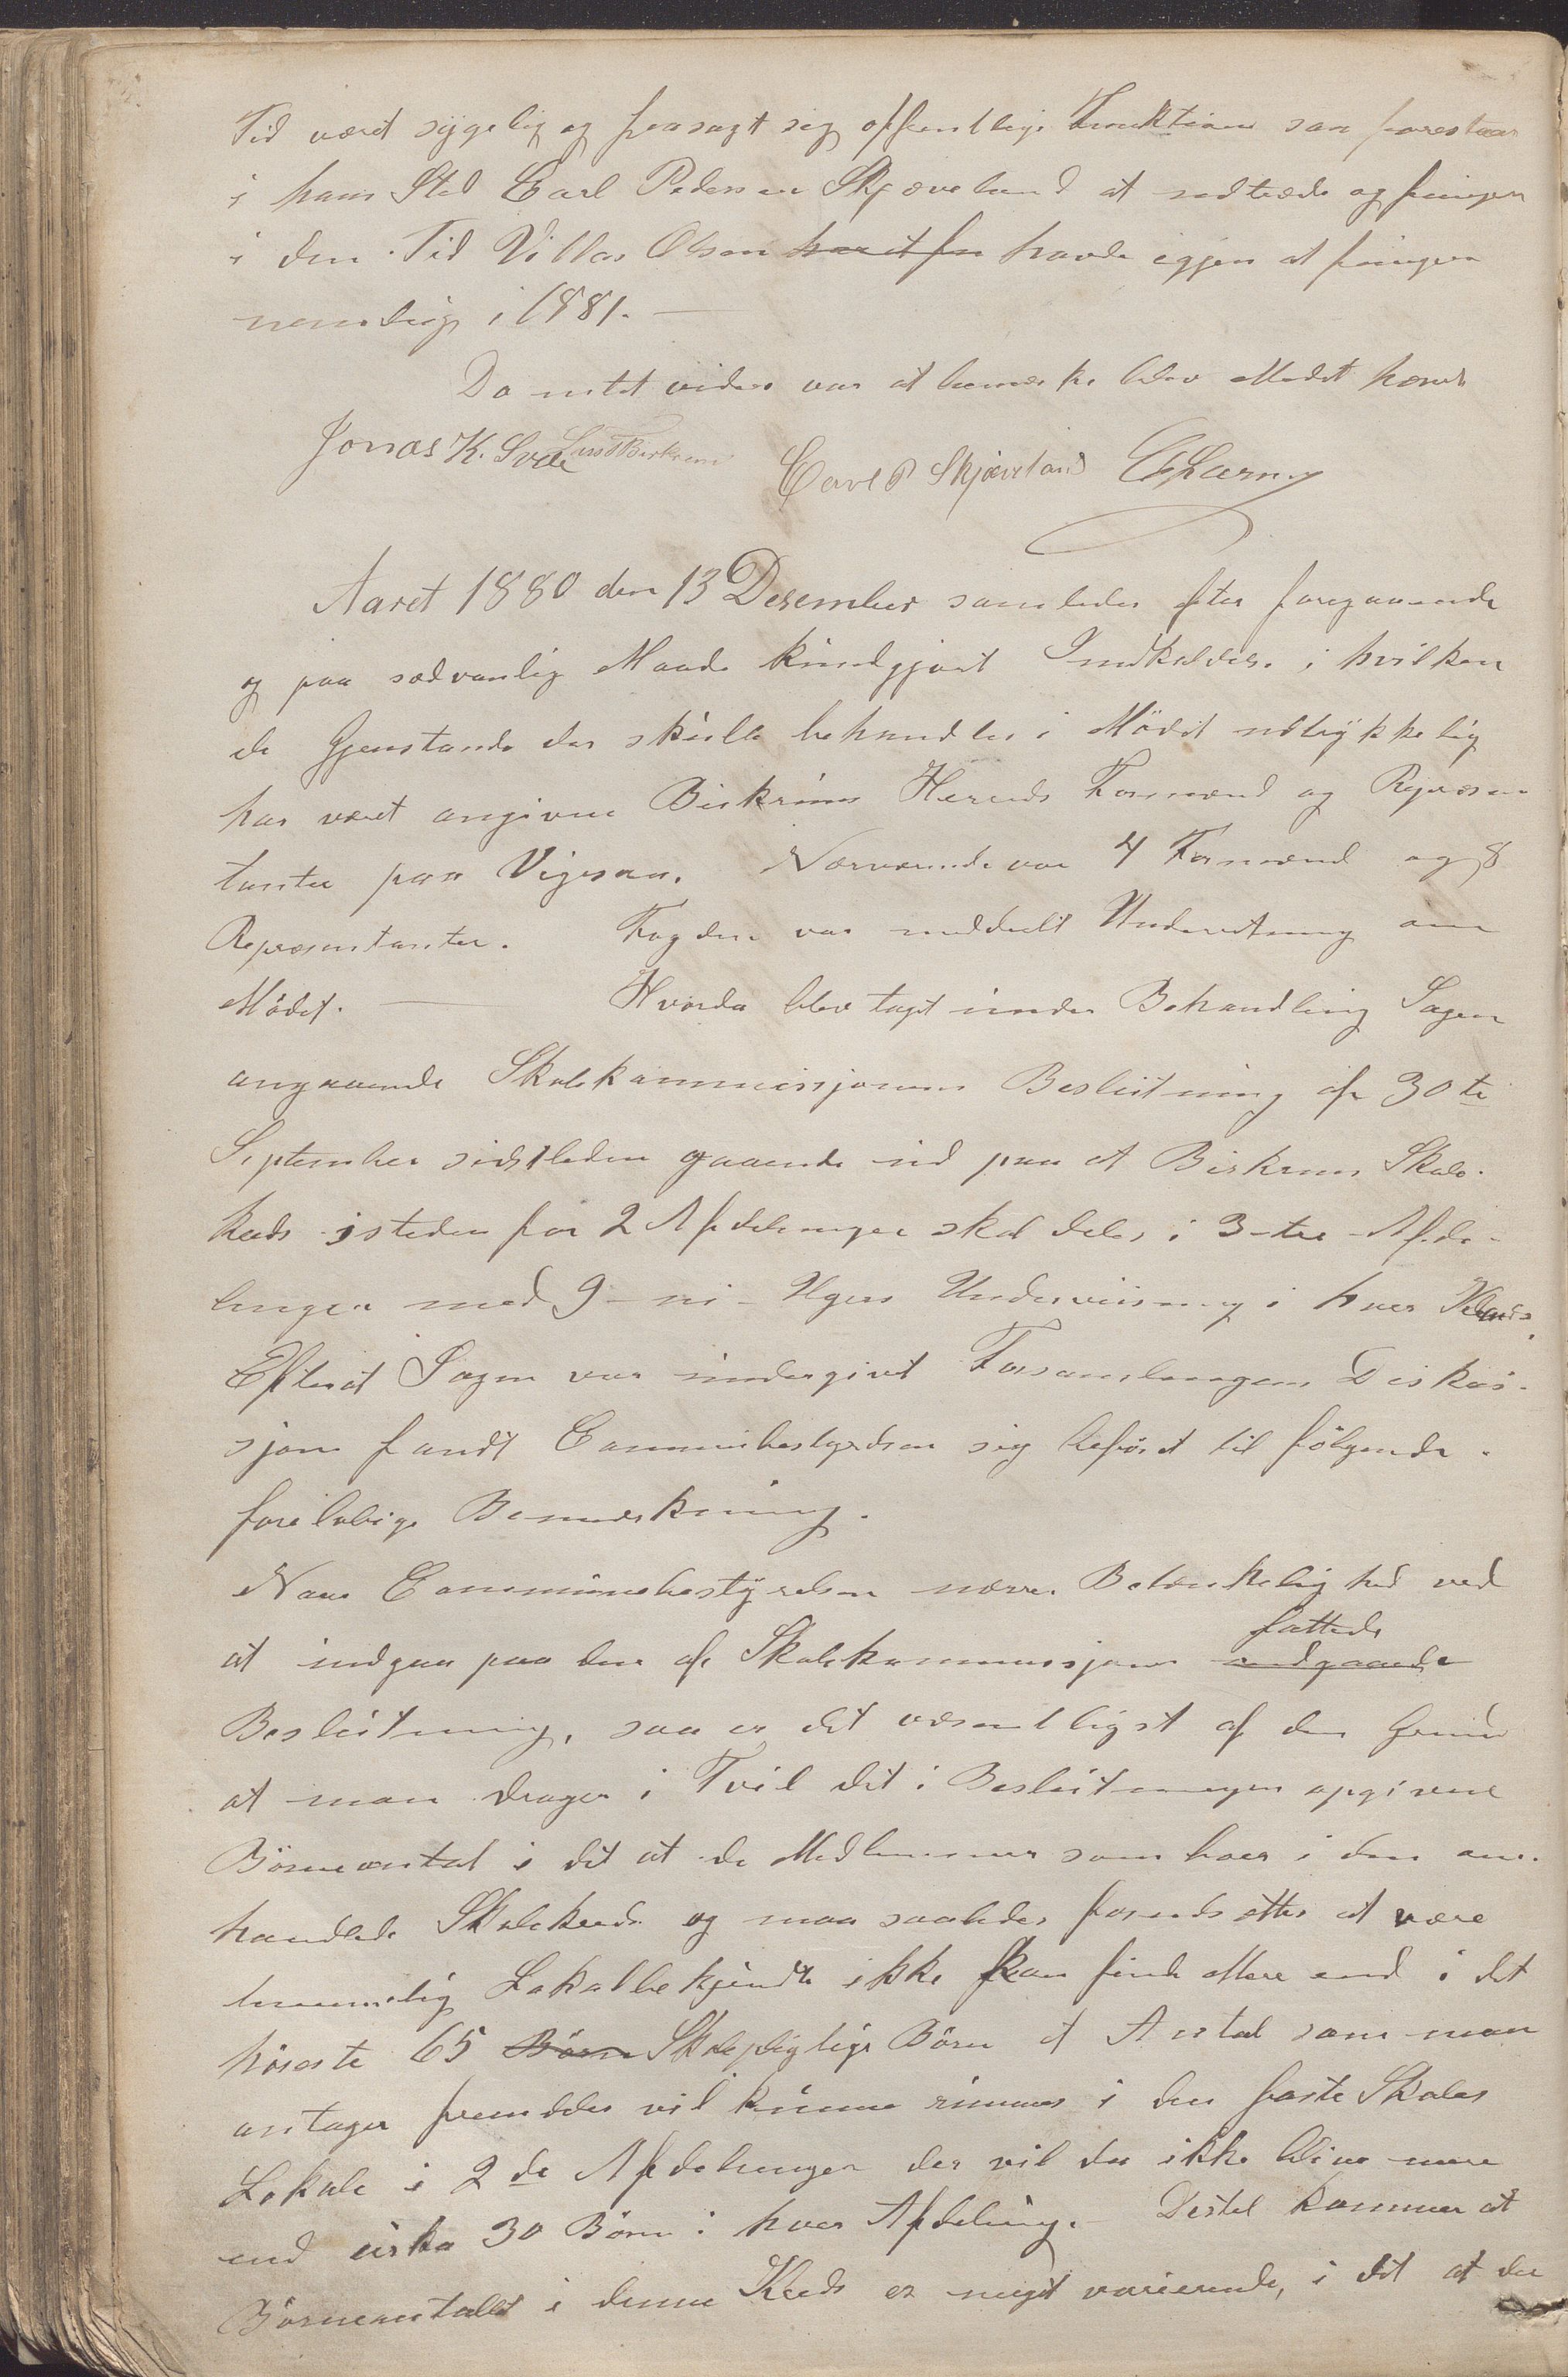 Tid været sygelig og frasagt sig offentlige Funktioner saa forestaar
i hans Sted Carl Pedersen Skjæveland at indtræde og fungere
i den Tid Villas Olsen har at fun havde igjen at fungere
nemlig i 1881. —
Da intet videre var at bemærke blev Mødet hævet
Jonas K. Svele Carl P Skjæveland
Aaret 1880 den 13 Desember samledes efter foregaaende
og paa sædvanlig Maade kundgjort Indkaldelse i hvilken
de Gjenstande der skulle behandles i Mödet udtrykkelig
har været angivne Birkrims Hereds Formænd og Repræsen
tanter paa Vigesaa. Nærværende var 4 Formænd og 8
Repræsentanter. Fogden var meddelt Underretning om
Mödet. — Hvorda blev taget under Behandling Sagen
angaaende Skolekommissjonens Beslutning af 30te
September sidstleden gaaende ud paa at Birkrems Skole-
kreds isteden for 2 Afdelinger skal deles i 3-tre Afde-
linger med 9-ni-Ugers Underviisning i hver Kreds.
Efterat Sagen var undergivet Forsamlingens Diskus-
sjon fandt Communebestyrelsen sig beføiet til følgende
foreløbige Bemærkning.
Naar Communebestyrelsen nærer Betænkelighed ved
at indgaa paa den af Skolekommissjonen fattede
Beslutning, saa er det væsentligst af den Grund
at man drager i Tvil det i Beslutningen opgivne
Börneantal i det at de Medlemmer som boer i den om-
handlede Skolekreds og maa saaledes forudsættes at være
temmelig Lokalbekjendte ikke kan finde flere end i det
höieste 65 Börn Skolepligtige Börn et Antal som man
antager fremdeles vil kunne rummes i den faste Skoles
Lokale i 2de Afdelinger der vil da ikke blive mere
end cirka 30 Börn i hver Afdeling. Dertil kommer at
Börneantallet i denne Kreds er meget varierende, i det at der